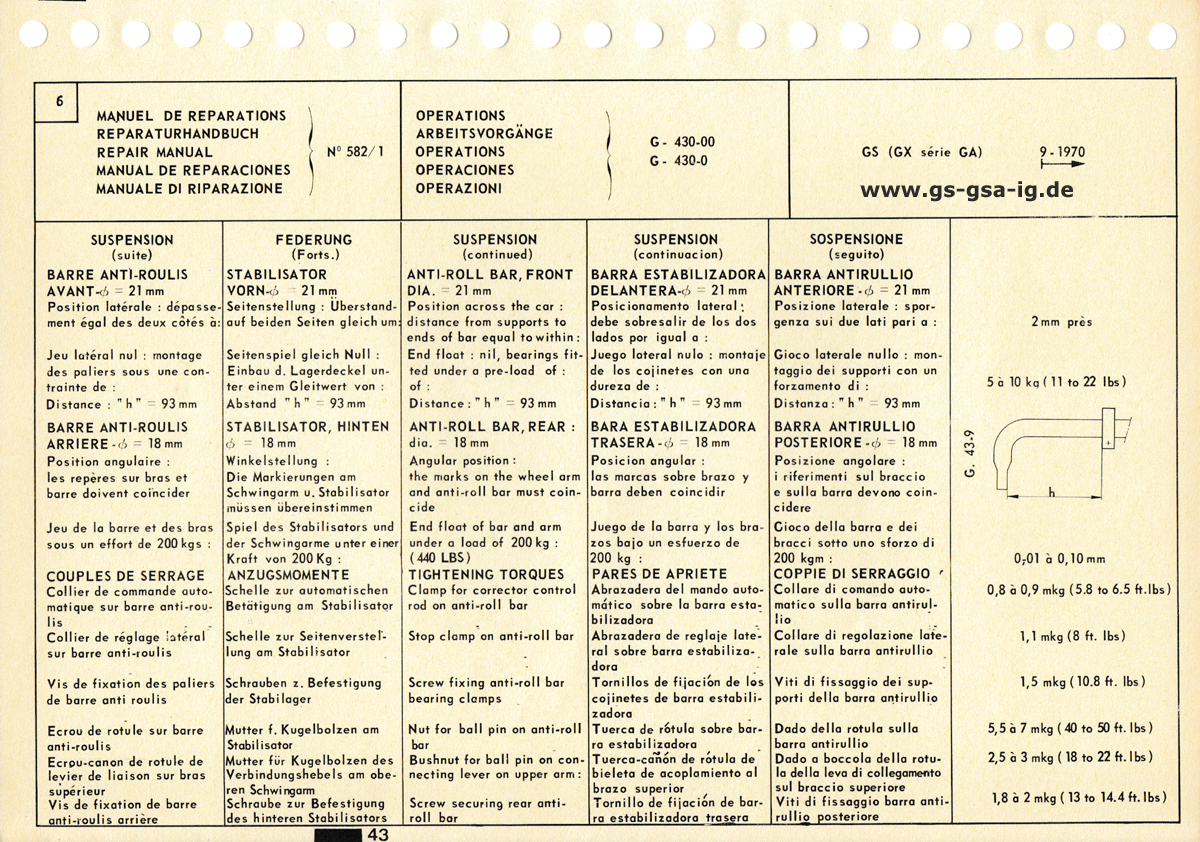 6
MANUEL DE REPARATIONS
REPARATURHANDBUCH
REPAIR MANUAL
MANUAL DE REPARACIONES
MANUALE DI RIPARAZIONE
N° 582/1
OPERATIONS
ARBEITSVORGÄNGE
OPERATIONS
OPERACIONES
OPERAZIONI
G - 430-00
G - 430-0
GS (GX série GA)
9 - 1970
www.gs-gsa-ig.de
SUSPENSION
(suite)
BARRE ANTI-ROULIS
AVANT-ϕ = 21 mm
Position latérale : dépasse-
ment égal des deux côtés à:
Jeu latéral nul : montage
des paliers sous une con-
trainte de :
Distance : "h" = 93 mm
BARRE ANTI-ROULIS
ARRIERE - ϕ = 18 mm
Position angulaire :
les repères sur bras et
barre doivent coïncider
Jeu de la barre et des bras
sous un effort de 200 kgs :
COUPLES DE SERRAGE
Collier de commande auto-
matique sur barre anti-rou-
lis
Collier de réglage latéral
sur barre anti-roulis
Vis de fixation des paliers
de barre anti roulis
Ecrou de rotule sur barre
anti-roulis
Ecrou-canon de rotule de
levier de liaison sur bras
supérieur
Vis de fixation de barre
anti-roulis arrière
FEDERUNG
(Forts.)
STABILISATOR
VORN-ϕ = 21 mm
Seitenstellung : Überstand-
auf beiden Seiten gleich um:
Seitenspiel gleich Null :
Einbau d. Lagerdeckel un-
ter einem Gleitwert von :
Abstand "h" = 93 mm
STABILISATOR, HINTEN
ϕ = 18 mm
Winkelstellung :
Die Markierungen am
Schwingarm u. Stabilisator
müssen übereinstimmen
Spiel des Stabilisators und
der Schwingarme unter einer
Kraft von 200 Kg :
ANZUGSMOMENTE
Schelle zur automatischen
Betätigung am Stabilisator
Schelle zur Seitenverstel-
lung am Stabilisator
Schrauben z. Befestigung
der Stabilager
Mutter f. Kugelbolzen am
Stabilisator
Mutter für Kugelbolzen des
Verbindungshebels am obe-
ren Schwingarm
Schraube zur Befestigung
des hinteren Stabilisators
SUSPENSION
(continued)
ANTI-ROLL BAR, FRONT
DIA. = 21 mm
Position across the car :
distance from supports to
ends of bar equal to within :
End float : nil, bearings fit-
ted under a pre-load of :
of :
Distance : "h" = 93 mm
ANTI-ROLL BAR, REAR :
dia. = 18 mm
Angular position :
the marks on the wheel arm
and anti-roll bar must coin-
cide
End float of bar and arm
under a load of 200 kg :
(440 LBS)
TIGHTENING TORQUES
Clamp for corrector control
rod on anti-roll bar
Stop clamp on anti-roll bar
Screw fixing anti-roll bar
bearing clamps
Nut for ball pin on anti-roll
bar
Bushnut for ball pin on con-
necting lever on upper arm :
Screw securing rear anti-
roll bar
SUSPENSION
(continuacion)
BARRA ESTABILIZADORA
DELANTERA-ϕ = 21 mm
Posicionamento lateral :
debe sobresalir de los dos
lados por igual a :
Juego lateral nulo : montaje
de los cojinetes con una
dureza de :
Distancia : "h" = 93 mm
BARA ESTABILIZADORA
TRASERA-ϕ = 18 mm
Posicion angular :
las marcas sobre brazo y
barra deben coincidir
Juego de la barra y los bra-
zos bajo un esfuerzo de
200 kg :
PARES DE APRIETE
Abrazadera del mando auto-
mático sobre la barra esta-
bilizadora
Abrazadera de reglaje late-
ral sobre barra estabiliza-
dora
Tornillos de fijación de los
cojinetes de barra estabili-
zadora
Tuerca de rótula sobre bar-
ra estabilizadora
Tuerca-cañón de rótula de
bieleta de acoplamiento al
brazo superior
Tornillo de fijación de bar-
ra estabilizadora trasera
SOSPENSIONE
(seguito)
BARRA ANTIRULLIO
ANTERIORE - ϕ = 21 mm
Posizione laterale : spor-
genza sui due lati pari a :
Gioco laterale nullo : mon-
taggio dei supporti con un
forzamento di :
Distanza : "h" = 93 mm
BARRA ANTIRULLIO
POSTERIORE - ϕ = 18 mm
Posizione angolare :
i riferimenti sul braccio
e sulla barra devono coin-
cidere
Gioco della barra e dei
bracci sotto uno sforzo di
200 kgm :
COPPIE DI SERRAGGIO
Collare di comando auto-
matico sulla barra antirul-
lio
Collare di regolazione late-
rale sulla barra antirullio
Viti di fissaggio dei sup-
porti della barra antirullio
Dado della rotula sulla
barra antirullio
Dado a boccola della rotu-
la della leva di collegamento
sul braccio superiore
Viti di fissaggio barra anti-
rullio posteriore
2 mm près
5 à 10 kg (11 to 22 lbs)
G. 43-9
h
0,01 à 0,10 mm
0,8 à 0,9 mkg (5.8 to 6.5 ft.lbs)
1,1 mkg (8 ft. lbs)
1,5 mkg (10.8 ft. lbs)
5,5 à 7 mkg (40 to 50 ft. lbs)
2,5 à 3 mkg (18 to 22 ft.lbs)
1,8 à 2 mkg (13 to 14.4 ft.lbs)
43